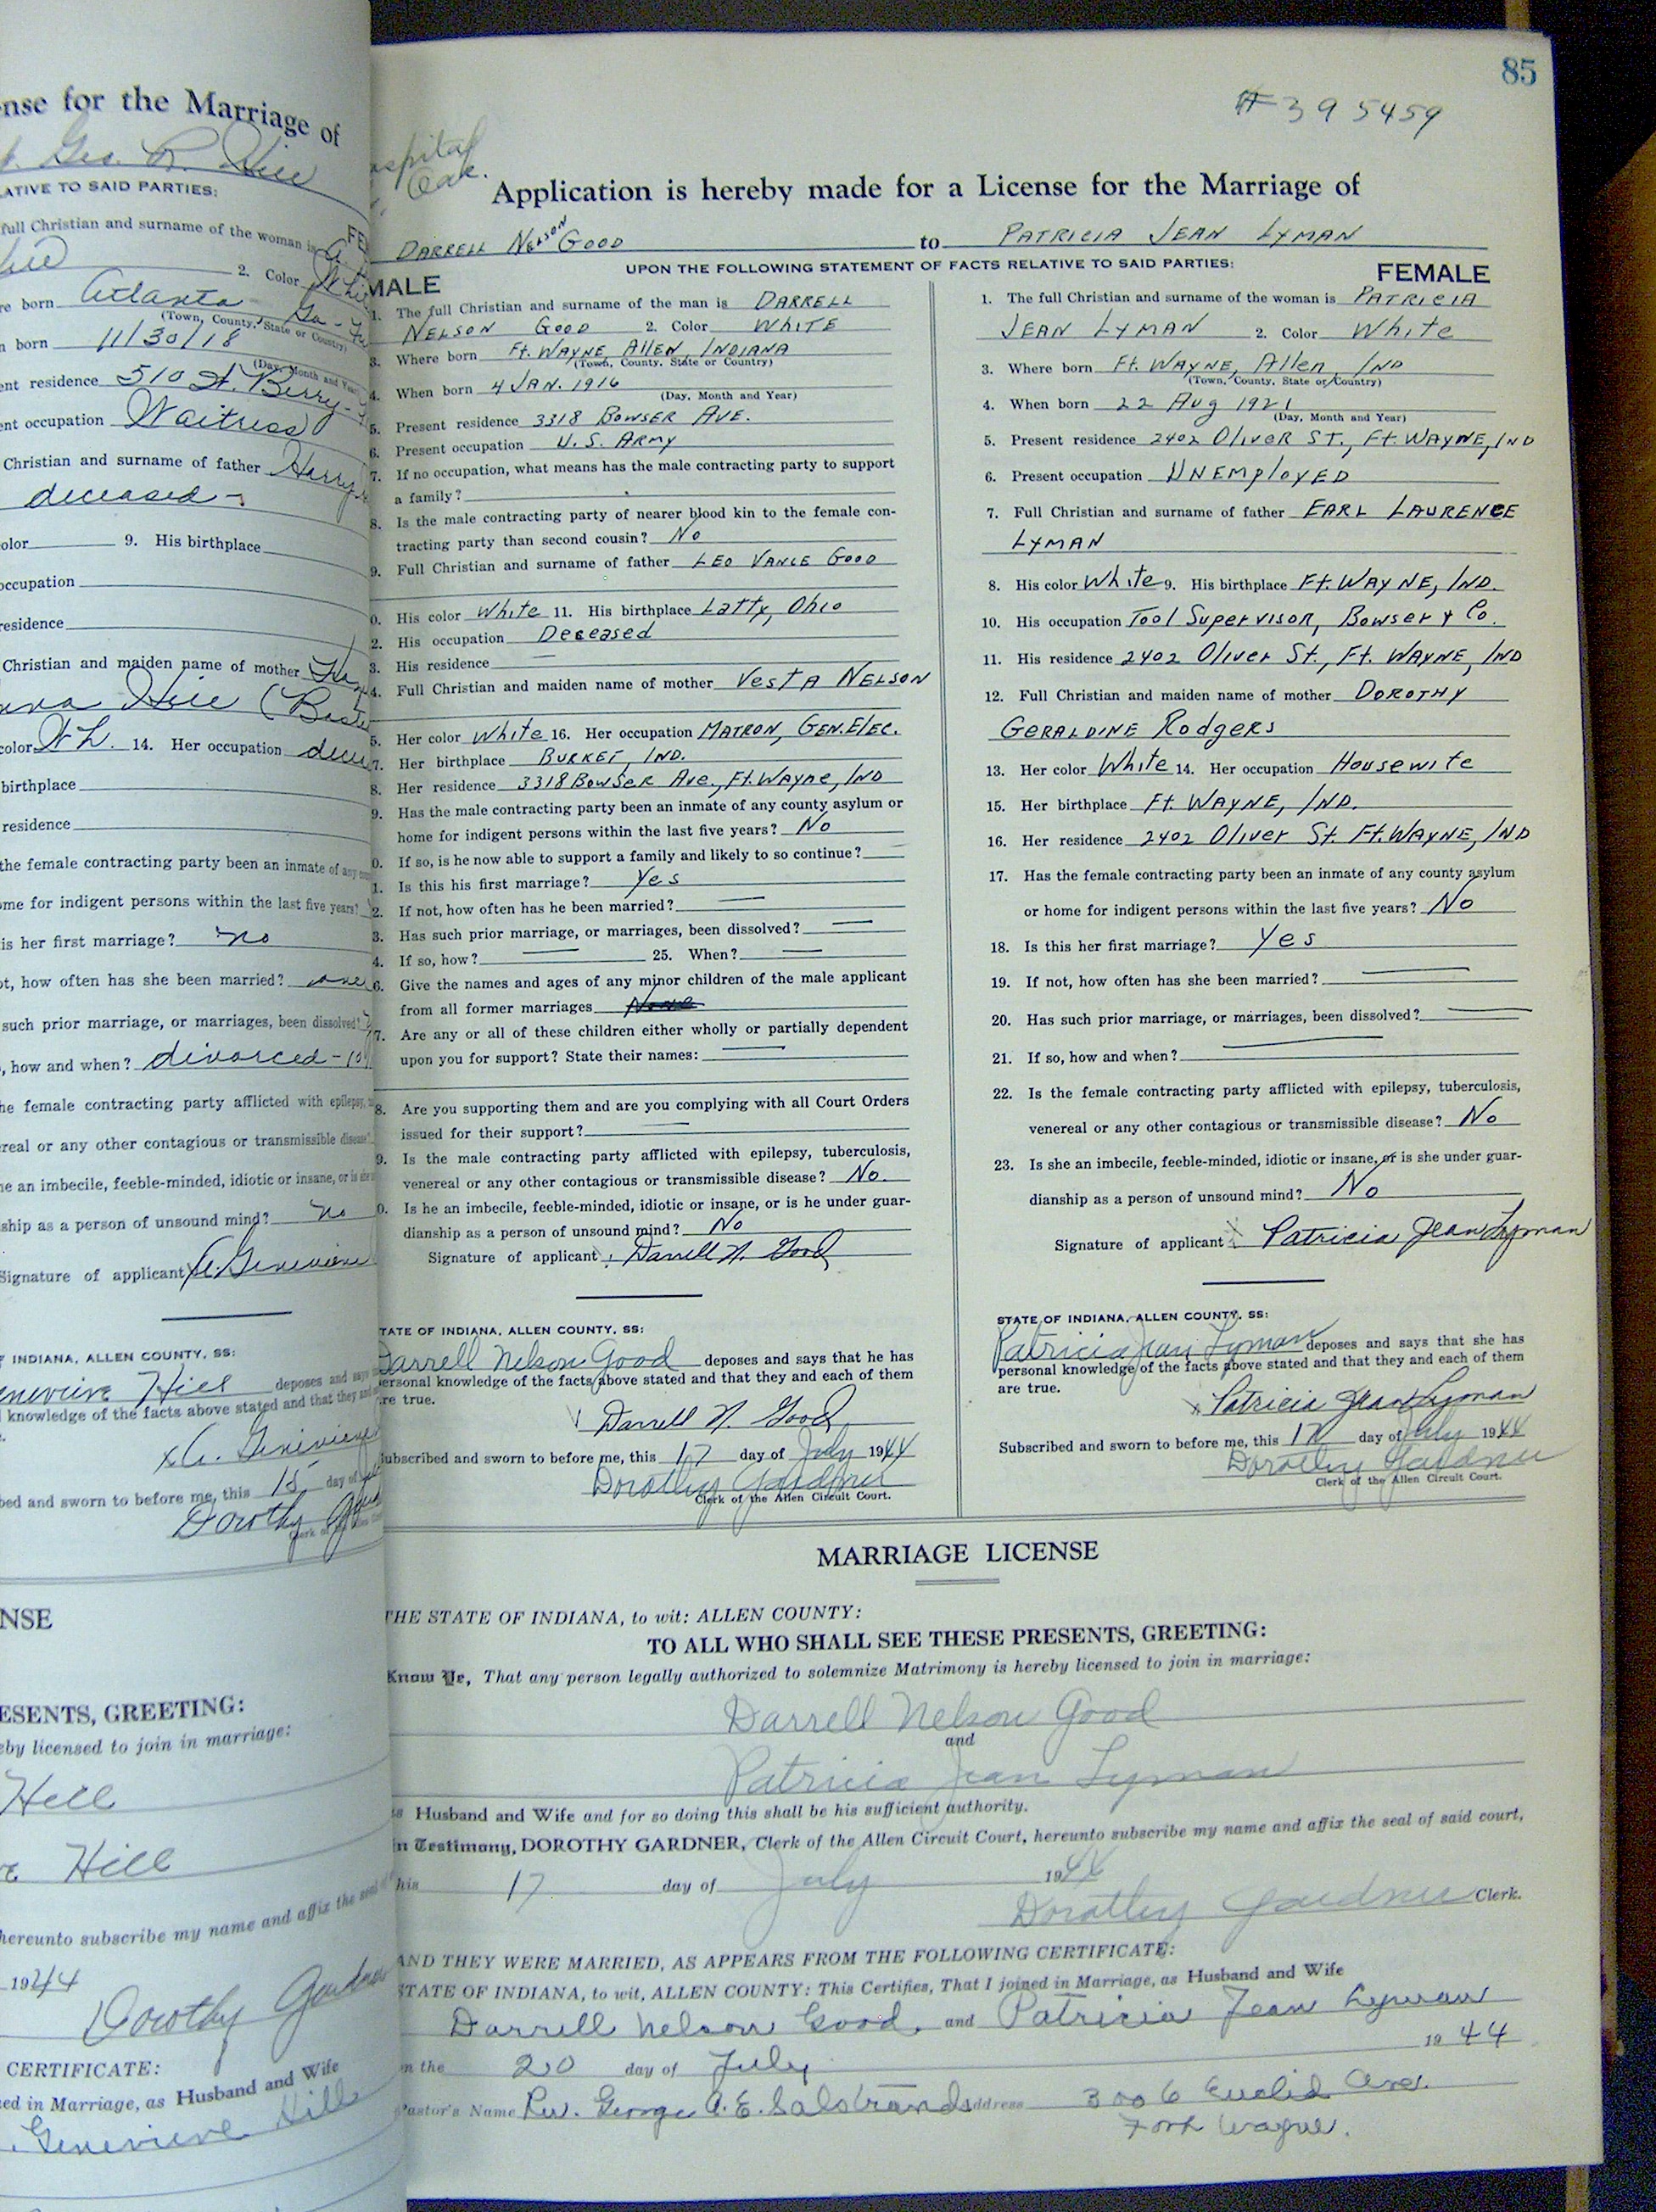 nse for the Marriage of
Geo. R. Hill
ATIVE TO SAID PARTIES:
full Christian and surname of the woman is
2. Color
re born Atlanta Ga
(Town, County, State or Country)
n born 11/30/18
(Day, Month and Yea
ent residence 510 W. Berry
ent occupation Waitress
Christian and surname of father Harry
deceased
olor 9. His birthplace
occupation
residence
Christian and maiden name of mother
color Wh. 14. Her occupation
birthplace
residence
the female contracting party been an inmate of any
me for indigent persons within the last five years?
is her first marriage? no
ot, how often has she been married? one
such prior marriage, or marriages, been dissolved?
, how and when? divorced - 10
he female contracting party afflicted with epilepsy,
ereal or any other contagious or transmissible disease?
he an imbecile, feeble-minded, idiotic or insane, or is she
ship as a person of unsound mind? no
Signature of applicant A. Genevieve
F INDIANA, ALLEN COUNTY, SS:
enevieve Hill deposes and says
knowledge of the facts above stated and that they and
x A. Genevieve
bed and sworn to before me, this 15 day of
Dorothy
NSE
ESENTS, GREETING:
eby licensed to join in marriage:
Hill
Hill
hereunto subscribe my name and affix the seal of
1944
Dorothy Gardner
CERTIFICATE:
ed in Marriage, as Husband and Wife
Genevieve Hill
85
# 395459
ospital
Oak.
Application is hereby made for a License for the Marriage of
DARRELL NELSON GOOD to PATRICIA JEAN LYMAN
UPON THE FOLLOWING STATEMENT OF FACTS RELATIVE TO SAID PARTIES:
MALE
1. The full Christian and surname of the man is DARRELL
NELSON GOOD 2. Color WHITE
3. Where born Ft. WAYNE, Allen, INDIANA
(Town, County, State or Country)
4. When born 4 JAN. 1916
(Day, Month and Year)
5. Present residence 3318 BOWSER AVE.
6. Present occupation U.S. ARMY
7. If no occupation, what means has the male contracting party to support
a family?
8. Is the male contracting party of nearer blood kin to the female con-
tracting party than second cousin? No
9. Full Christian and surname of father LEO VANCE GOOD
0. His color White 11. His birthplace Latty, Ohio
2. His occupation Deceased
3. His residence —
4. Full Christian and maiden name of mother VestA NELSON
5. Her color White 16. Her occupation MATRON, GEN. ELEC.
7. Her birthplace BURKET, IND.
8. Her residence 3318 BowSer Ave., Ft. Wayne, IND
9. Has the male contracting party been an inmate of any county asylum or
home for indigent persons within the last five years? No
0. If so, is he now able to support a family and likely to so continue? —
1. Is this his first marriage? Yes
2. If not, how often has he been married? —
3. Has such prior marriage, or marriages, been dissolved? —
4. If so, how? — 25. When? —
6. Give the names and ages of any minor children of the male applicant
from all former marriages None
7. Are any or all of these children either wholly or partially dependent
upon you for support? State their names: —
8. Are you supporting them and are you complying with all Court Orders
issued for their support? —
9. Is the male contracting party afflicted with epilepsy, tuberculosis,
venereal or any other contagious or transmissible disease? No.
0. Is he an imbecile, feeble-minded, idiotic or insane, or is he under guar-
dianship as a person of unsound mind? No
Signature of applicant: Darrell N. Good
TATE OF INDIANA, ALLEN COUNTY, SS:
Darrell Nelson Good deposes and says that he has
ersonal knowledge of the facts above stated and that they and each of them
re true.
Darrell N. Good
ubscribed and sworn to before me, this 17 day of July 1944
Dorothy Gardner
Clerk of the Allen Circuit Court.
FEMALE
1. The full Christian and surname of the woman is PATRICIA
JEAN LYMAN 2. Color White
3. Where born Ft. WAYNE, Allen, IND
(Town, County, State or Country)
4. When born 22 Aug 1921
(Day, Month and Year)
5. Present residence 2402 OliveR ST., Ft. WAYNE, IND
6. Present occupation UNEMployED
7. Full Christian and surname of father EARL LAURENCE
LYMAN
8. His color White 9. His birthplace Ft. WAYNE, IND.
10. His occupation Tool Supervisor, Bowser & Co.
11. His residence 2402 Oliver St., Ft. WAYNE, IND
12. Full Christian and maiden name of mother DOROTHY
GERALDINE RodgeRS
13. Her color White 14. Her occupation Housewife
15. Her birthplace Ft. WAYNE, IND.
16. Her residence 2402 Oliver St. Ft. WAYNE, IND
17. Has the female contracting party been an inmate of any county asylum
or home for indigent persons within the last five years? No
18. Is this her first marriage? Yes
19. If not, how often has she been married? —
20. Has such prior marriage, or marriages, been dissolved? —
21. If so, how and when? —
22. Is the female contracting party afflicted with epilepsy, tuberculosis,
venereal or any other contagious or transmissible disease? No
23. Is she an imbecile, feeble-minded, idiotic or insane, or is she under guar-
dianship as a person of unsound mind? No
Signature of applicant: x Patricia Jean Lyman
STATE OF INDIANA, ALLEN COUNTY, SS:
Patricia Jean Lyman deposes and says that she has
personal knowledge of the facts above stated and that they and each of them
are true.
x Patricia Jean Lyman
Subscribed and sworn to before me, this 17 day of July 1944
Dorothy Gardner
Clerk of the Allen Circuit Court.
MARRIAGE LICENSE
THE STATE OF INDIANA, to wit: ALLEN COUNTY:
TO ALL WHO SHALL SEE THESE PRESENTS, GREETING:
Know Ye, That any person legally authorized to solemnize Matrimony is hereby licensed to join in marriage:
Darrell Nelson Good
and
Patricia Jean Lyman
as Husband and Wife and for so doing this shall be his sufficient authority.
In Testimony, DOROTHY GARDNER, Clerk of the Allen Circuit Court, hereunto subscribe my name and affix the seal of said court,
this 17 day of July 1944
Dorothy Gardner Clerk.
AND THEY WERE MARRIED, AS APPEARS FROM THE FOLLOWING CERTIFICATE:
STATE OF INDIANA, to wit, ALLEN COUNTY: This Certifies, That I joined in Marriage, as Husband and Wife
Darrell Nelson Good, and Patricia Jean Lyman
on the 20 day of July 1944
Pastor's Name Rev. George A.E. Salstrand Address 3006 Euclid Ave.
Fort Wayne.